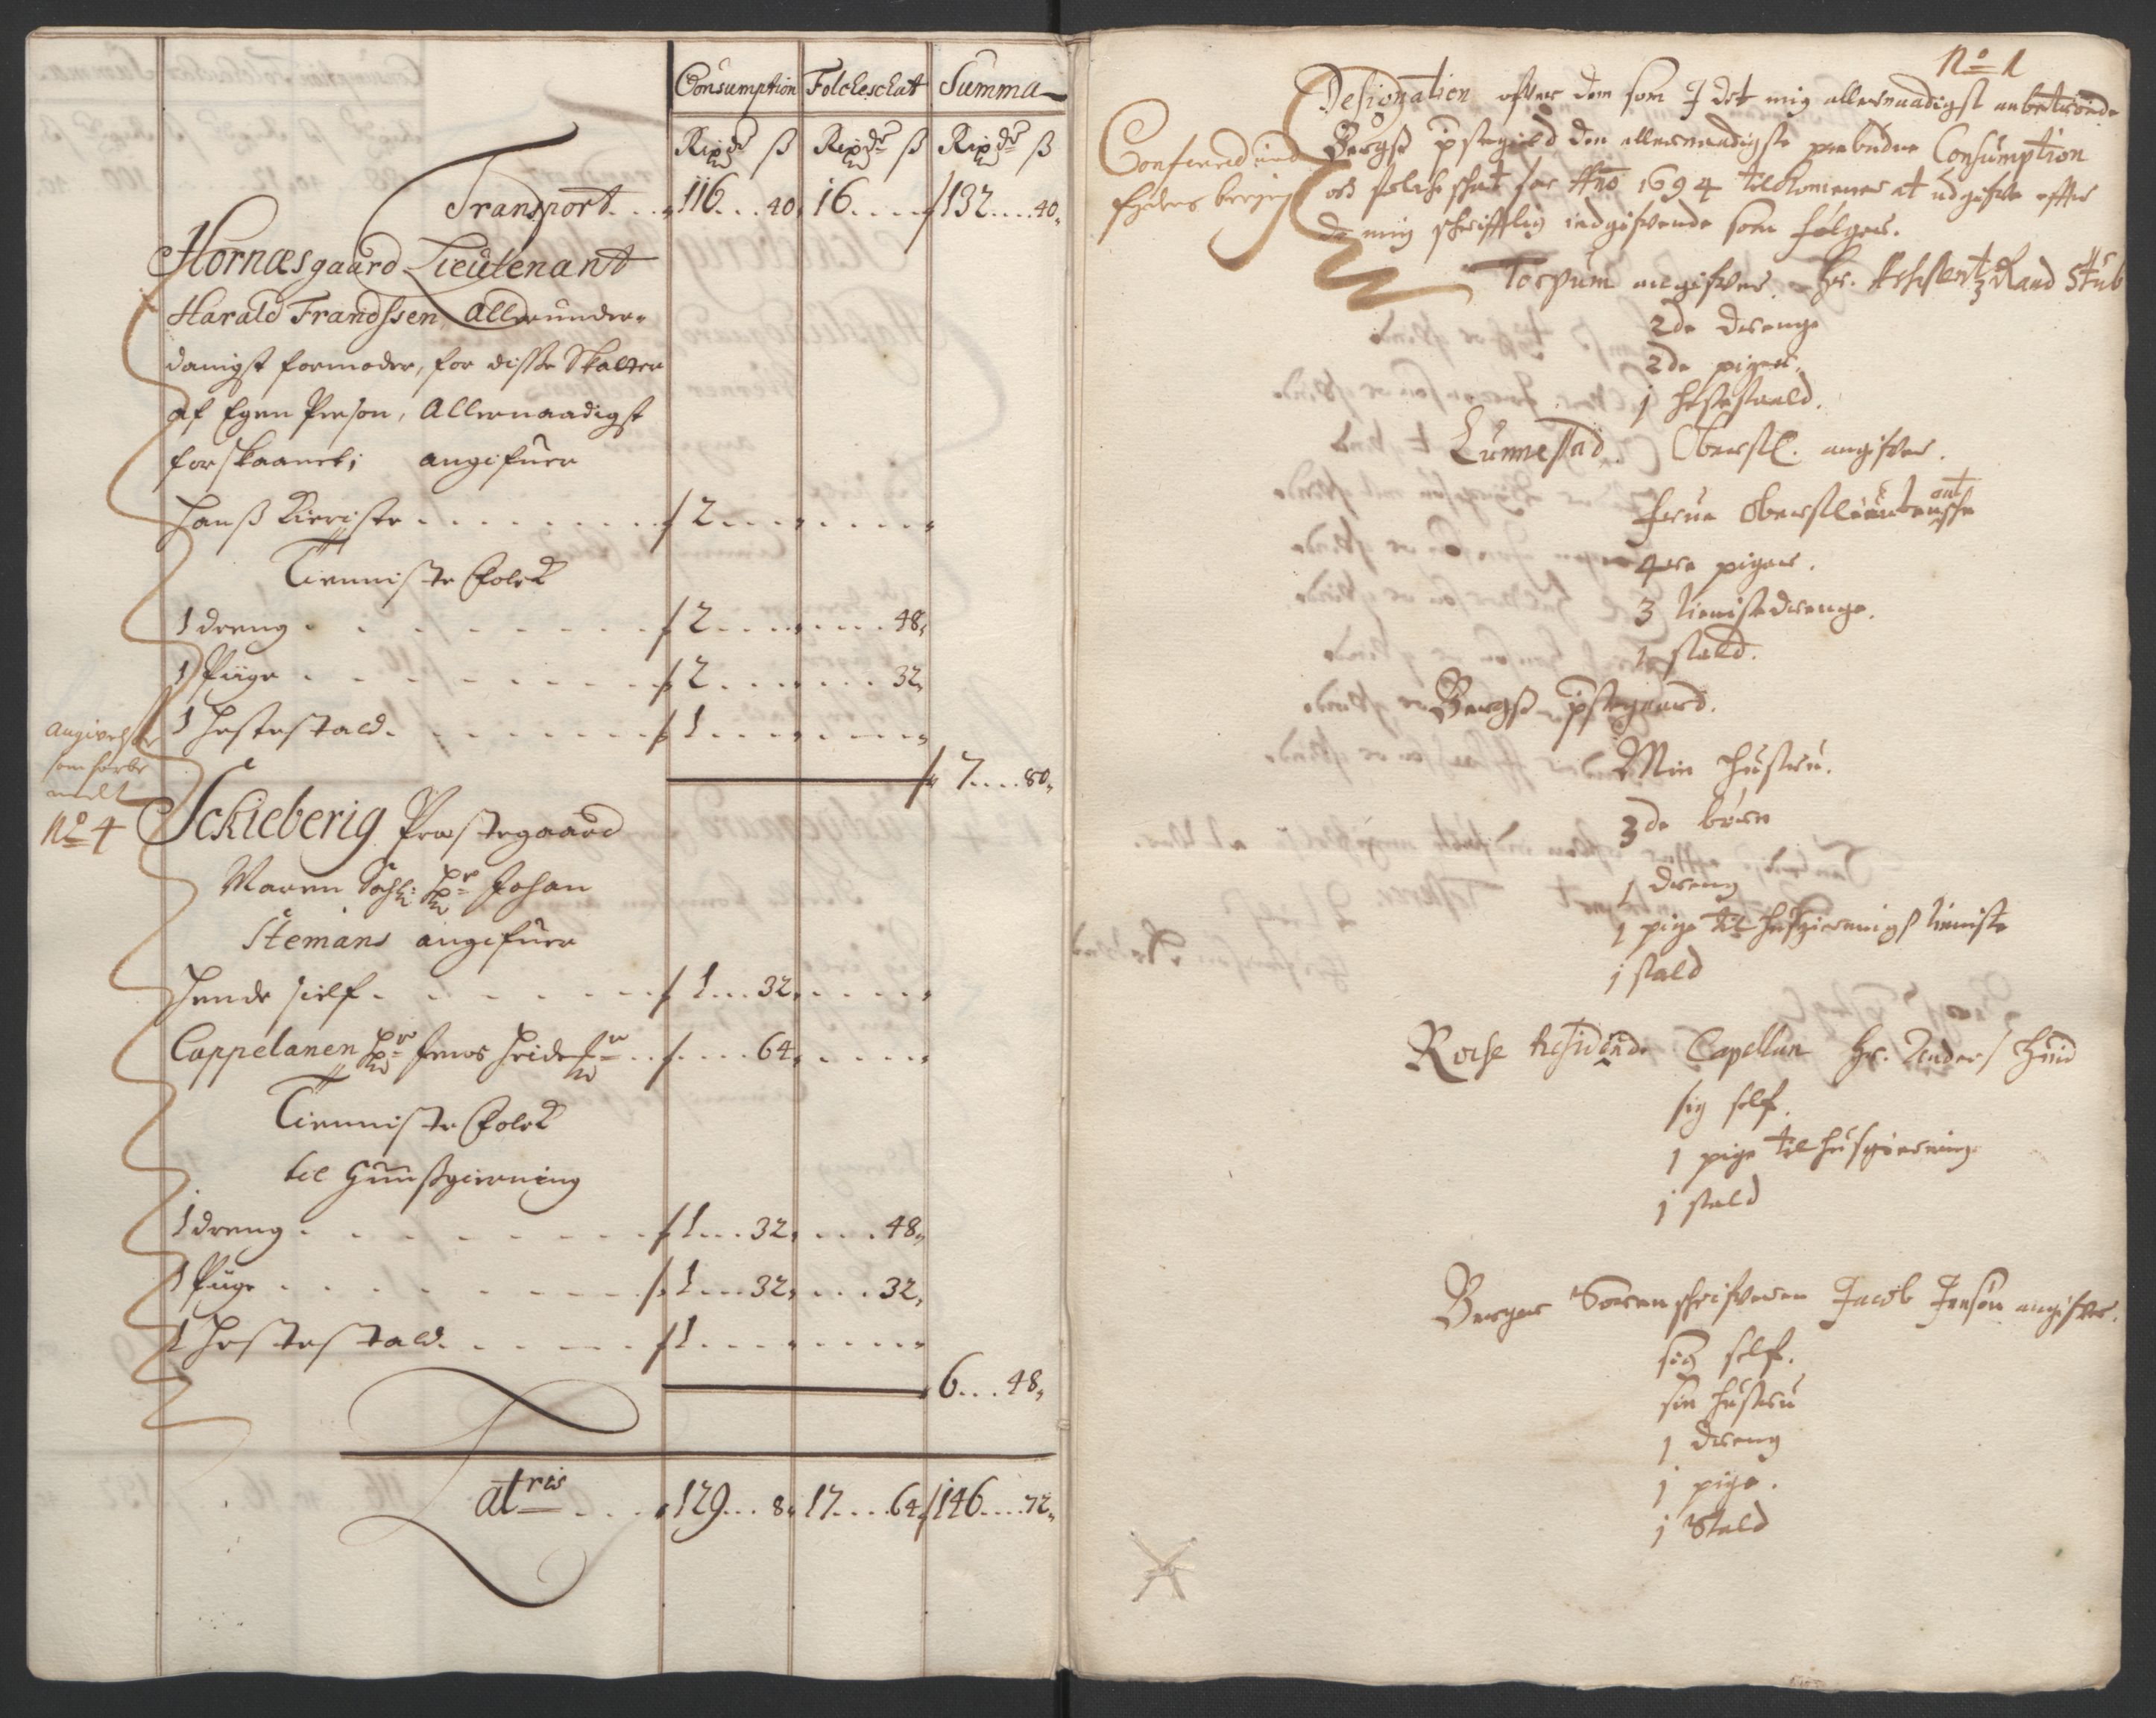 Consumption Folcheschat Summa
Rixdr ß Rixdr ß Rixdr ß
Transport . . . 116 . . . 40, 16 . . . . 132 . . . . 40,
Hornæsgaard Lieutenant
Harald Frandssen Allerunder-
danigst formoder, for disse Skatter
af Egen Person, Allernaadigst
forskaanet; angifuer
Hanß Kieriste . . . . . . 2 . . . . . . . .
Tienniste Folck
1 dreng . . . . . . 2 . . . . . . . 48,
1 Piige . . . . . . 2 . . . . . . . 32,
1 Hestestald . . . . . . 1 . . . . . . . .
7 . . . . 80,
angivelse
som forbe
meelt
No 4
Schieberig Præstegaard
Maren Sahl: Hr Johan
Stemans angifuer
Hende sielf . . . . . . 1 . . . 32, . . . .
Cappelanen Hr Jens . . . . . 64, . . . .
Tienniste Folck
til Huußgierning
1 dreng . . . . . . 1 . . . 32, . . . 48,
1 Piige . . . . . . 1 . . . 32, . . . 32,
1 Hestestald . . . . . . 1 . . . . . . . .
6 . . . 48,
Latris . . . 129 . . . 8, 17 . . . . 64, 146 . . . . 72,
No 1
Designation ofver dem som I det mig allernaadigst anbetroede
Bergs pstegield den allernaadigste paabudne Consumption
och folcheschat for Ao 1694 tilkommer at udgifve efter
de mig schrifftlig indgifvende som følger.
Confererid
Torpum angifver. Hr. Assistentz Raad Stub
2de drenge
2de piger,
1 hestestald.
Lunnestad. Oberstl. angifver.
Frue Oberstleutenantsche
4re piger.
3 tienistedrenge.
1 stald.
Bergs pstegaard.
Min Hustru.
3de børn
1 dreng
1 pige til husgiernings tieniste
1 stald
Roese residende Capellan Hr. Anders Huid
sig self.
1 pige til husgierning
1 stald
Berger Sorenschrifveren Jacob Jensøn angifver.
sig self.
sin hustru
1 dreng
1 pige.
1 Stald